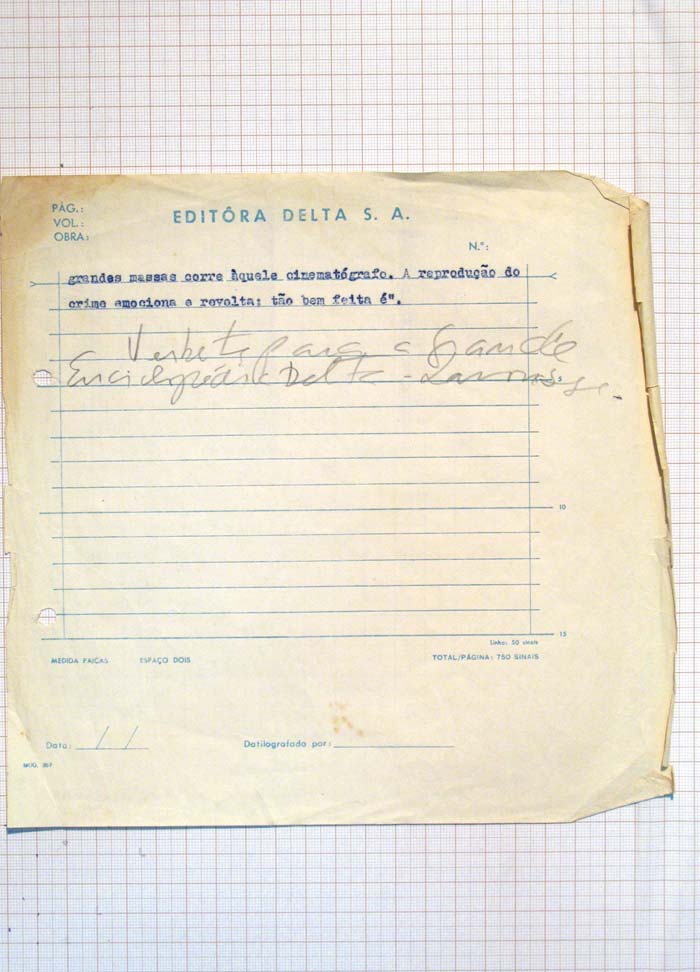 PÁG.:
VOL.:
OBRA:
EDITÔRA DELTA S. A.
N.º:
grandes massas corre àquele cinematógrafo. A reprodução do
crime emociona e revolta; tão bem feita é".
Verbete para a Grande
Enciclopédia Delta-Larousse.
5
10
15
Linha: 50 sinais
MEDIDA PAICAS ESPAÇO DOIS TOTAL/PÁGINA: 750 SINAIS
Data: / / Datilografado por:
MOD. 357